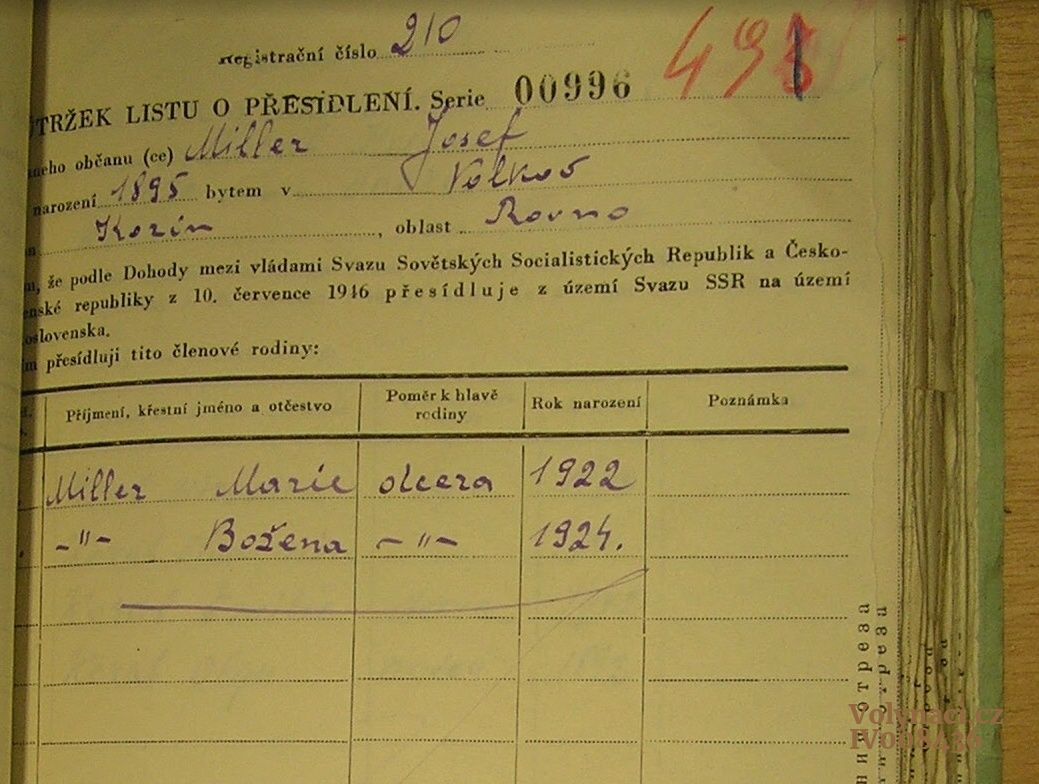 Registrační číslo 210
498
TRŽEK LISTU O PŘESIDLENÍ. Serie 00996
ného občanu (ce) Miller Josef
narození 1895 bytem v Volkov
Korin, oblast Rovno
, že podle Dohody mezi vládami Svazu Sovětských Socialistických Republik a Česko-
enské republiky z 10. července 1946 přesídluje z území Svazu SSR na území
oslovenska.
m přesídluji tito členové rodiny:
Příjmení, křestní jméno a otčestvo Poměr k hlavě rodiny Rok narození Poznámka
Miller Marie dcera 1922
-"- Božena -"- 1924.
отреза
отреза
Volynaci.cz